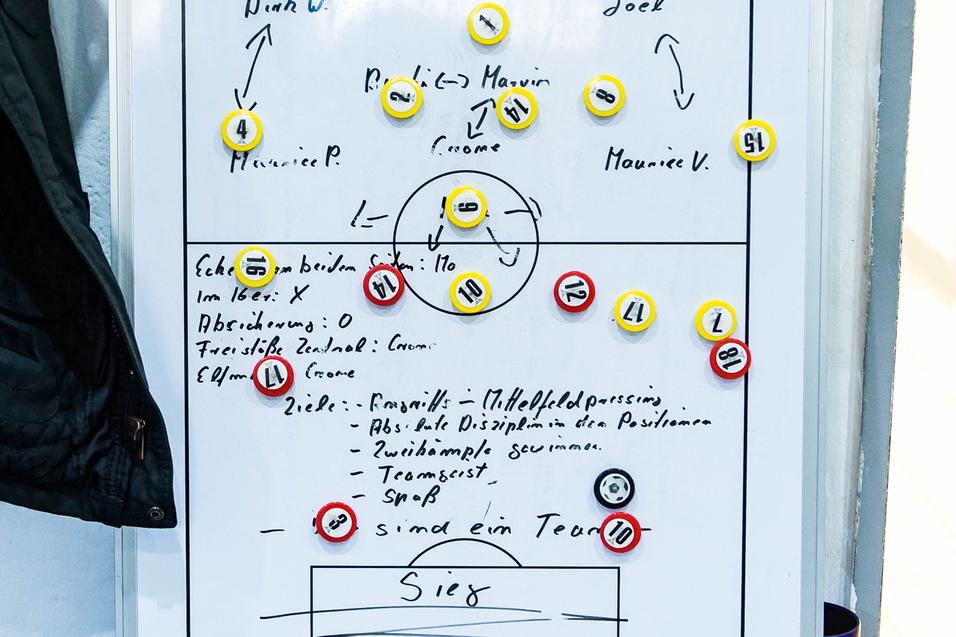 Dirk W. Joel
1
Marvin
2 14 8
4 15
Maurice P. Gnome Maurice V.
9
Ecken beiden Seiten: Mo
16 14 10 12 17 7 18
Im 16er: X
Absicherung: O
Freistöße Zentral: Gnome
17 Gnome
Ziele: - Angriffs - Mittelfeldpressing
- Absolute Disziplin in den Positionen
- Zweikämpfe gewinnen
- Teamgeist
- Spaß
3 sind ein Team - 10
Sieg